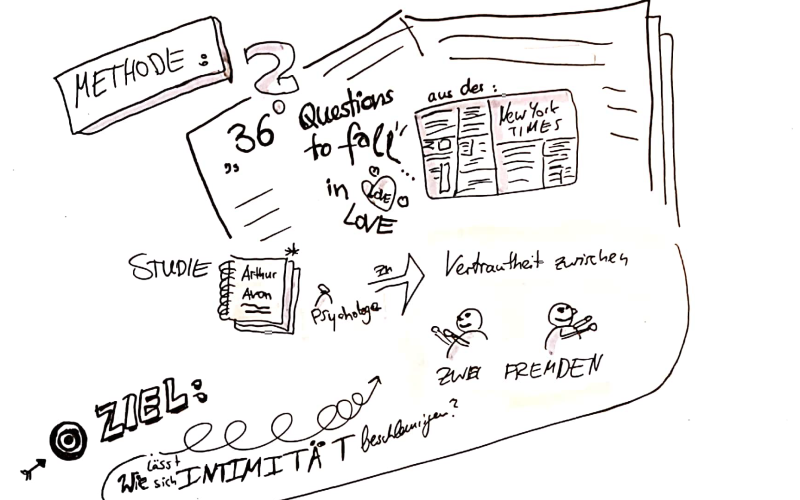 METHODE:
?
„36
Questions
to fall"
in LOVE
LOVE
aus der:
New York
TIMES
STUDIE
*
Arthur
Aron
Psychologe
zu
Vertrautheit zwischen
ZWEI FREMDEN
ZIEL:
Wie lässt sich INTIMITÄT beschleunigen?